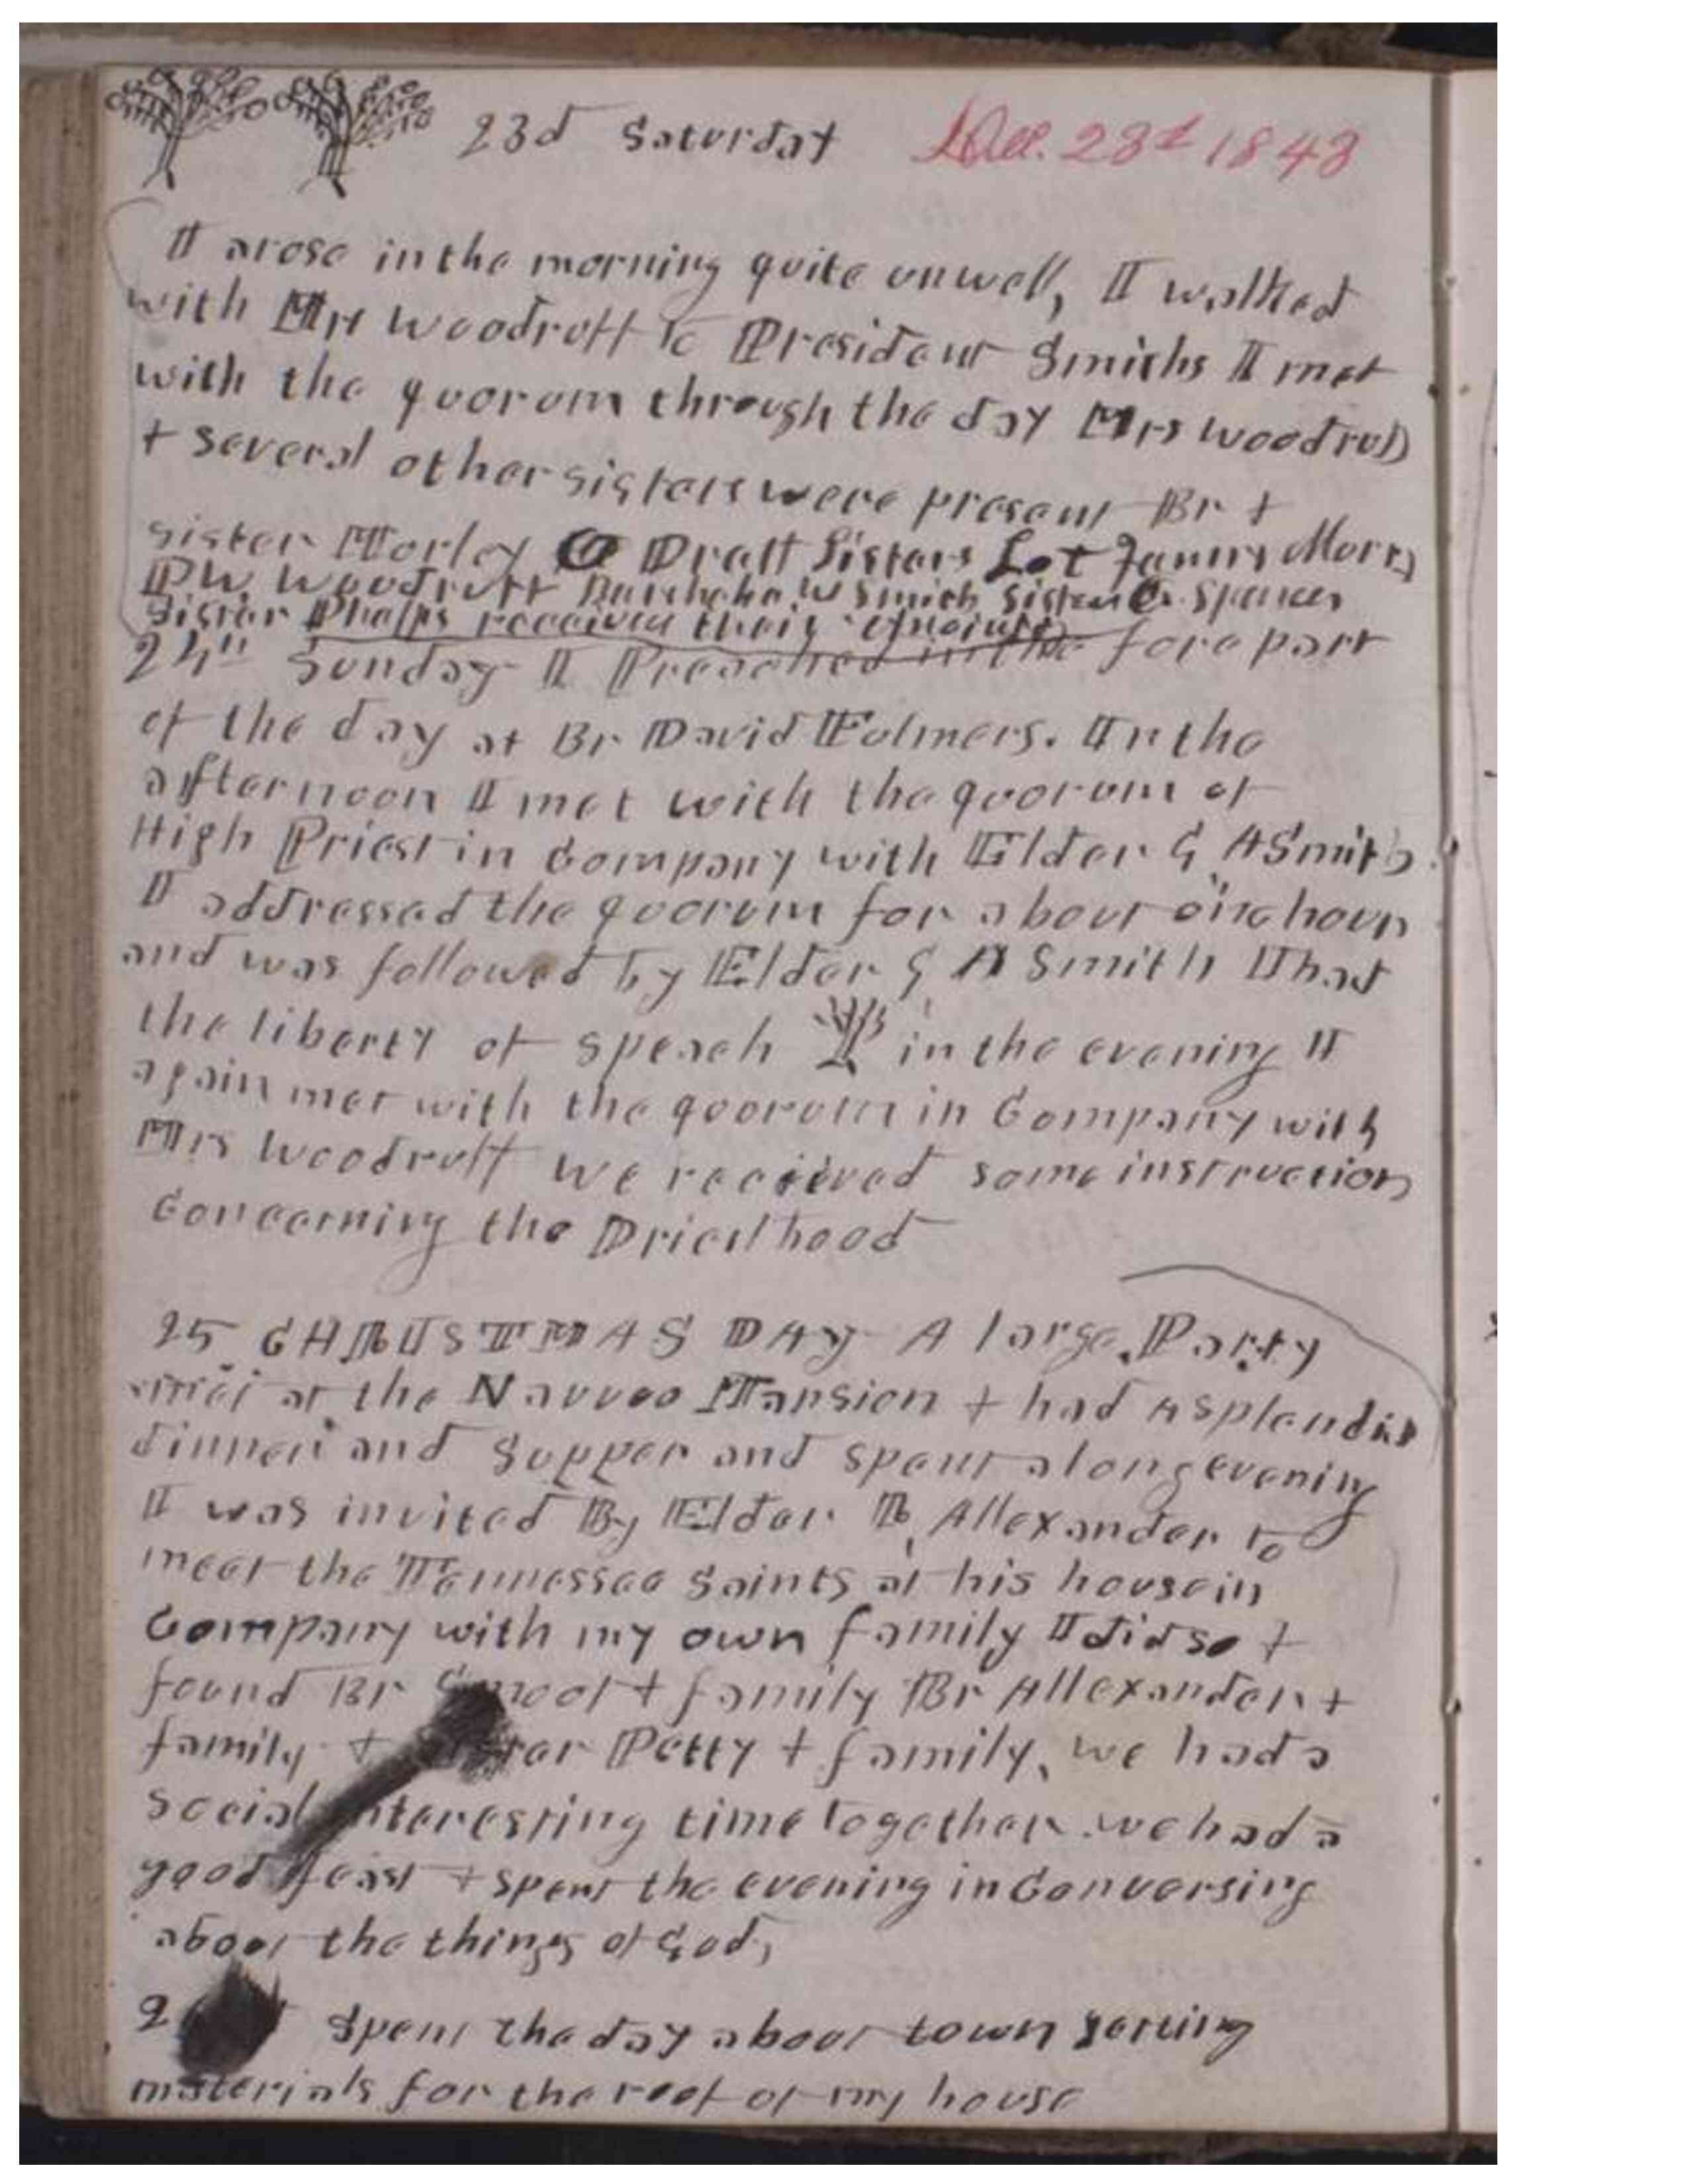 23d Saturday Dec. 23d 1843
I arose in the morning quite unwell, I walked
with Mrs Woodruff to President Smiths I met
with the quorum through the day Mrs Woodruff
+ several other sisters were present Br +
sister Morley O Pratt Sisters Lot Fanny Murry
P W. Woodruff Barsheba W Smith Sister O. Spencer
Sister Phelps received their
24th Sunday I Preached in the fore part
of the day at Br David Fulmers. In the
afternoon I met with the quorum of
High Priest in Company with Elder G A Smith
I addressed the quorum for about one hour
and was followed by Elder G A Smith I had
the liberty of speach in the evening I
again met with the quorum in Company with
Mrs Woodruff we received some instruction
Concerning the Priesthood
25 CHRISTMAS DAY A large Party
at the Nauvoo Mansion + had A splendid
dinner and Supper and spent a long evening
I was invited By Elder R, Allexander to
meet the Tennessee Saints at his house in
Company with my own family I did so +
found Br Smoot + family Br Allexander +
family + Petty + family, we had a
social interesting time together. we had a
good feast + spent the evening in Conversing
about the things of God,
Spent the day about town getting
materials for the roof of my house